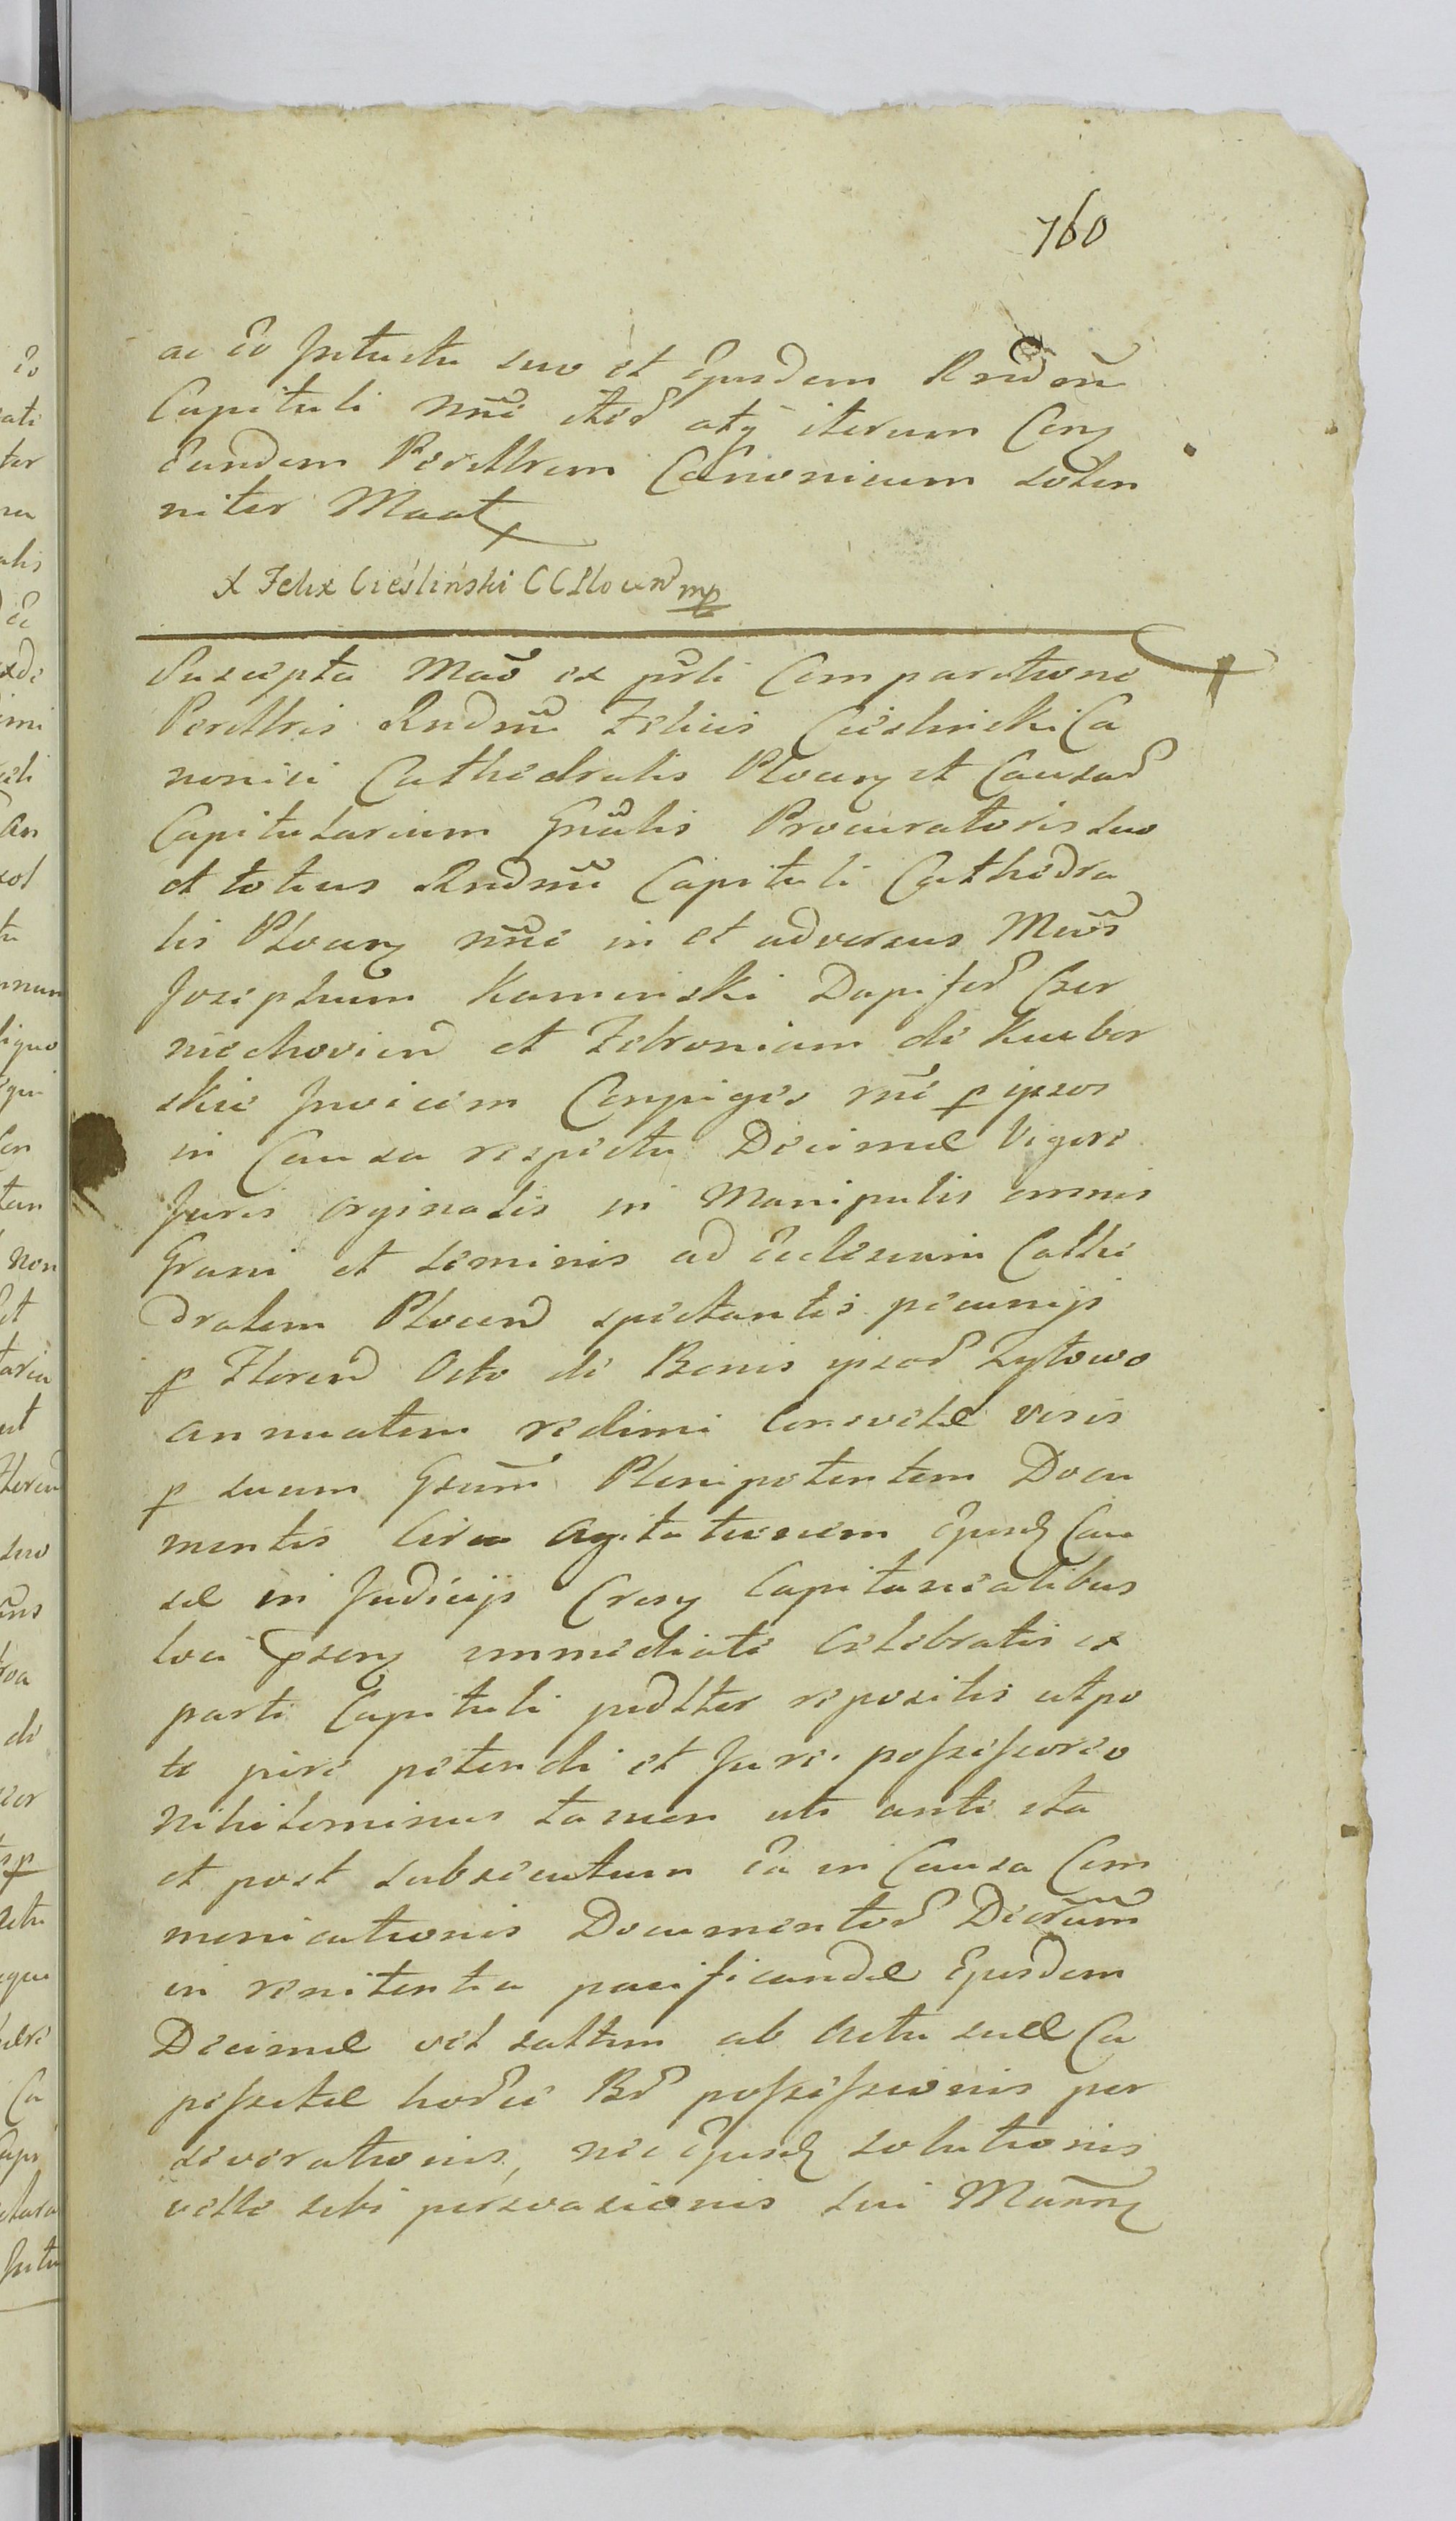 760
ac eo Intuitu suo et Ejusdem Rndmi
Capituli nnie itid atq iterum Conq
Eundem Perillrem Canonicum solen
niter Maat
X Felix Cieśliński CCPlocen mp
Suscepta Mao ex prsti Comparitione
Perillris Rndmi Felicis Cieslinski Ca
nonici Cathedralis Plocen et Causar
Capitularium Gnalis Procuratoris suo
et totius Rndmi Capituli Cathedra
lis Plocen nnie in et adversus Mcos
Josephum Kaminski Dapifer Czer
niechovien et Febroniam de Kuczbor
skie Invicem Conjuges nnie p ipsos
in Causa respectu Decimæ Vigore
Juris orginalis in Manipulis omnis
Grani et seminis ad Ecclesiam Cathe
dralem Plocen spectantis pecunijs
p Floren Octo de Bonis ipsor Zytowo
annuatim redimi Consvetæ visis
p suum Gsum Plenipotentem Docu
mentis Circa Agitationem Ejusd Cau
sæ in Judicijs Cren Capitanealibus
loci psen immediate Celebratis ex
parte Capituli judlter repositis utpo
te jure petendi et Jure possessorio
Nihilominus tamen uti ante ita
et post subsecutum Ea in Causa Com
municationis Documentor Decrum
in renitentia pacificandæ Ejusdem
Decimæ vel saltim ab Actu suæ Ca
pessitæ hor Br possessionis per
severationis, nec Ejusd solutionis
velle sibi persvasionis sui